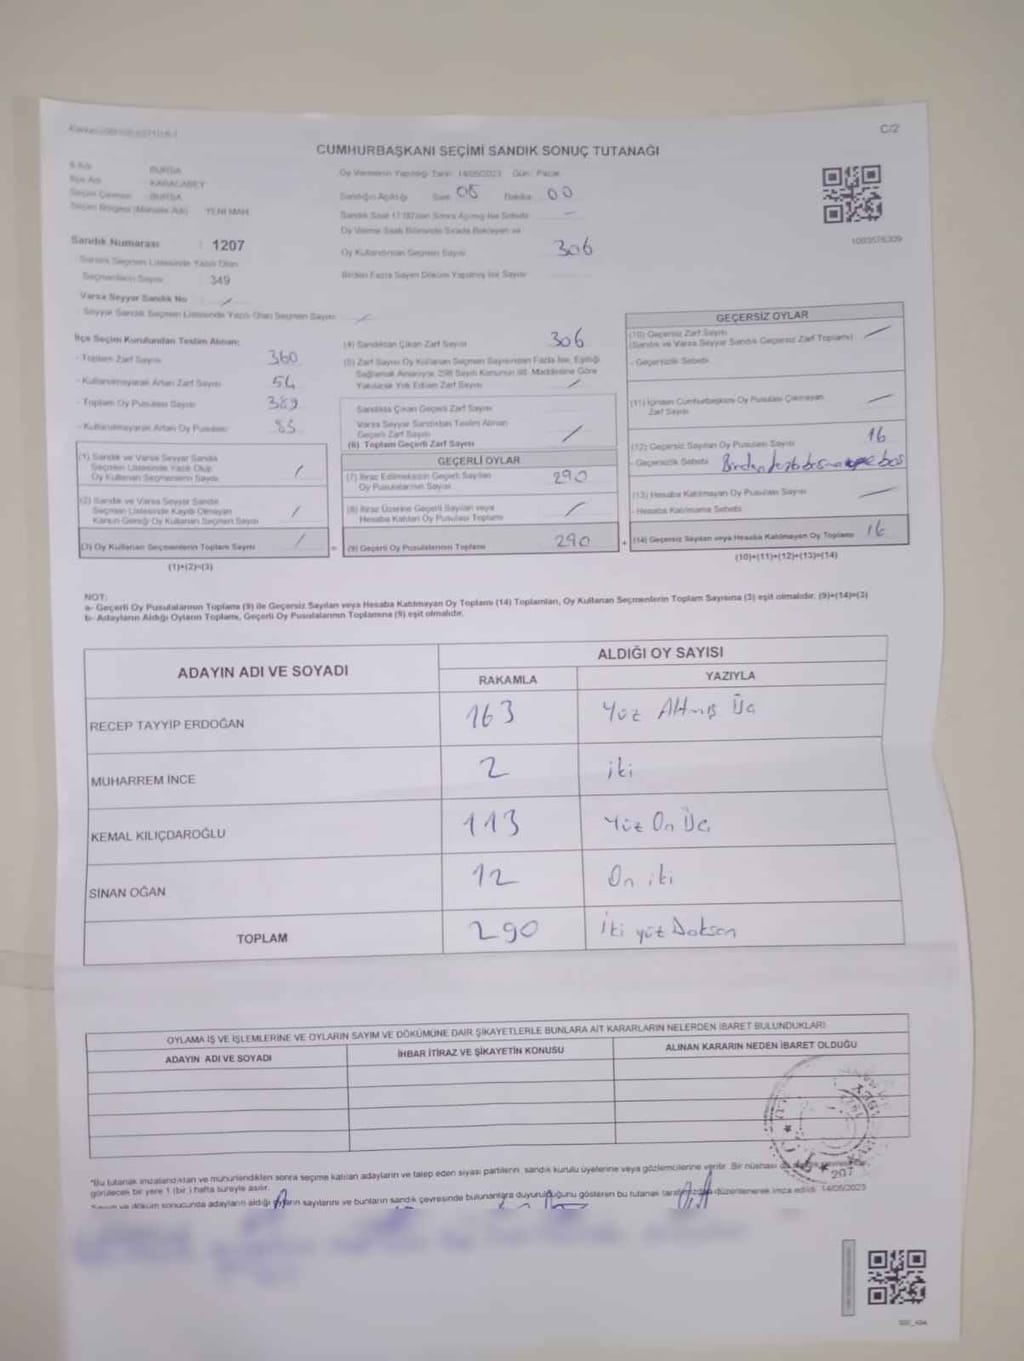 C/2
CUMHURBAŞKANI SEÇİMİ SANDIK SONUÇ TUTANAĞI
İl Adı BURSA
İlçe Adı KARACABEY
Seçim Çevresi BURSA
Seçim Bölgesi (Mahalle Adı) YENİ MAH.
Sandık Numarası : 1207
Sandık Seçmen Listesinde Yazılı Olan
Seçmenlerin Sayısı 349
Varsa Seyyar Sandık No
Seyyar Sandık Seçmen Listesinde Yazılı Olan Seçmen Sayısı
Oy Vermenin Yapıldığı Tarih 14/05/2023 Gün: Pazar
Sandığın Açıldığı Saat 08 Dakika 00
Oy Kullandırılan Seçmen Sayısı 306
Birden Fazla Sayım Döküm Yapılmış İse Sayısı
İlçe Seçim Kurulundan Teslim Alınan:
- Toplam Zarf Sayısı 360
- Kullanılmayarak Artan Zarf Sayısı 54
- Toplam Oy Pusulası Sayısı 389
- Kullanılmayarak Artan Oy Pusulası
(1) Sandık ve Varsa Seyyar Sandık
Seçmen Listesinde Yazılı Olup
Oy Kullanan Seçmenlerin Sayısı
(2) Sandık ve Varsa Seyyar Sandık
Seçmen Listesinde Kayıtlı Olmayan
Kanun Gereği Oy Kullanan Seçmen Sayısı
(3) Oy Kullanan Seçmenlerin Toplam Sayısı
(1)+(2)=(3)
(4) Sandıktan Çıkan Zarf Sayısı 306
(5) Zarf Sayısı Oy Kullanan Seçmen Sayısından Fazla İse, Eşitliği
Sağlamak Amacıyla 298 Sayılı Kanunun 98. Maddesine Göre
Yakılarak Yok Edilen Zarf Sayısı
Sandıkta Çıkan Geçerli Zarf Sayısı
Varsa Seyyar Sandıktan Teslim Alınan
Geçerli Zarf Sayısı
(6) Toplam Geçerli Zarf Sayısı
GEÇERLİ OYLAR
(7) İtiraz Edilmeksizin Geçerli Sayılan
Oy Pusulalarının Sayısı 290
(8) İtiraz Üzerine Geçerli Sayılan veya
Hesaba Katılan Oy Pusulası Toplamı
(9) Geçerli Oy Pusulalarının Toplamı 290
GEÇERSİZ OYLAR
(10) Geçersiz Zarf Sayısı
(Sandık ve Varsa Seyyar Sandık Geçersiz Zarf Toplamı)
- Geçersizlik Sebebi
(11) İçinden Cumhurbaşkanı Oy Pusulası Çıkmayan
Zarf Sayısı
(12) Geçersiz Sayılan Oy Pusulası Sayısı 16
- Geçersizlik Sebebi
(13) Hesaba Katılmayan Oy Pusulası Sayısı
- Hesaba Katılmama Sebebi
(14) Geçersiz Sayılan veya Hesaba Katılmayan Oy Toplamı 16
(10)+(11)+(12)+(13)=(14)
NOT:
a- Geçerli Oy Pusulalarının Toplamı (9) ile Geçersiz Sayılan veya Hesaba Katılmayan Oy Toplamı (14) Toplamları, Oy Kullanan Seçmenlerin Toplam Sayısına (3) eşit olmalıdır. (9)+(14)=(3)
b- Adayların Aldığı Oyların Toplamı, Geçerli Oy Pusulalarının Toplamına (9) eşit olmalıdır.
ADAYIN ADI VE SOYADI ALDIĞI OY SAYISI
RAKAMLA YAZIYLA
RECEP TAYYİP ERDOĞAN 163 Yüz Altmış Üç
MUHARREM İNCE 2 iki
KEMAL KILIÇDAROĞLU 113 Yüz On Üç
SİNAN OĞAN 12 On iki
TOPLAM 290 İki yüz Doksan
OYLAMA İŞ VE İŞLEMLERİNE VE OYLARIN SAYIM VE DÖKÜMÜNE DAİR ŞİKAYETLERLE BUNLARA AİT KARARLARIN NELERDEN İBARET BULUNDUKLARI
ADAYIN ADI VE SOYADI İHBAR İTİRAZ VE ŞİKAYETİN KONUSU ALINAN KARARIN NEDEN İBARET OLDUĞU
"Bu tutanak imzalandıktan ve mühürlendikten sonra seçime katılan adayların ve talep eden siyasi partilerin sandık kurulu üyelerine veya gözlemcilerine verilir. Bir nüshası da
görülecek bir yere 1 (bir) hafta süreyle asılır.
Sayım ve döküm sonucunda adayların aldığı oyların sayılarını ve bunların sandık çevresinde bulunanlara duyurulduğunu gösteren bu tutanak tarafımızdan düzenlenerek imza edildi. 14/05/2023